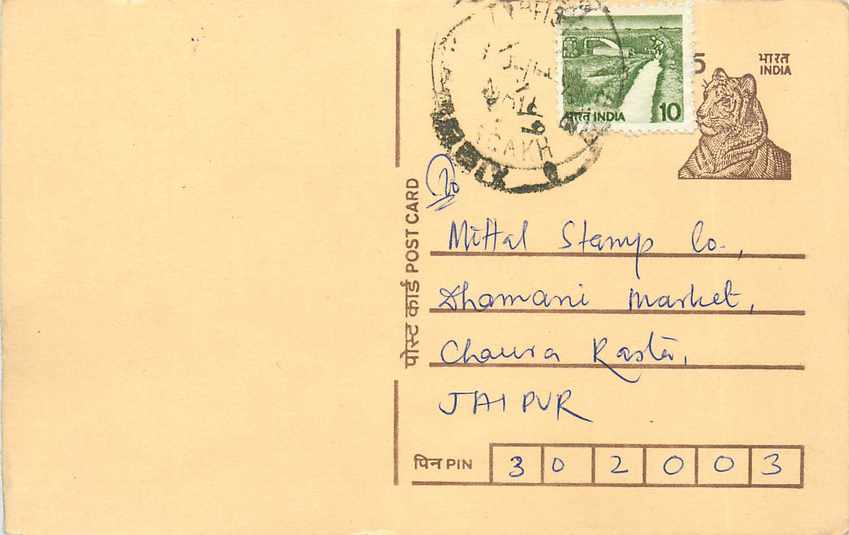 भारत
INDIA
5
भारत INDIA 10
पोस्ट कार्ड POST CARD
To
Mittal Stamp Co.,
Dhamani Market,
Chaura Rasta,
JAIPUR
पिन PIN 3 0 2 0 0 3